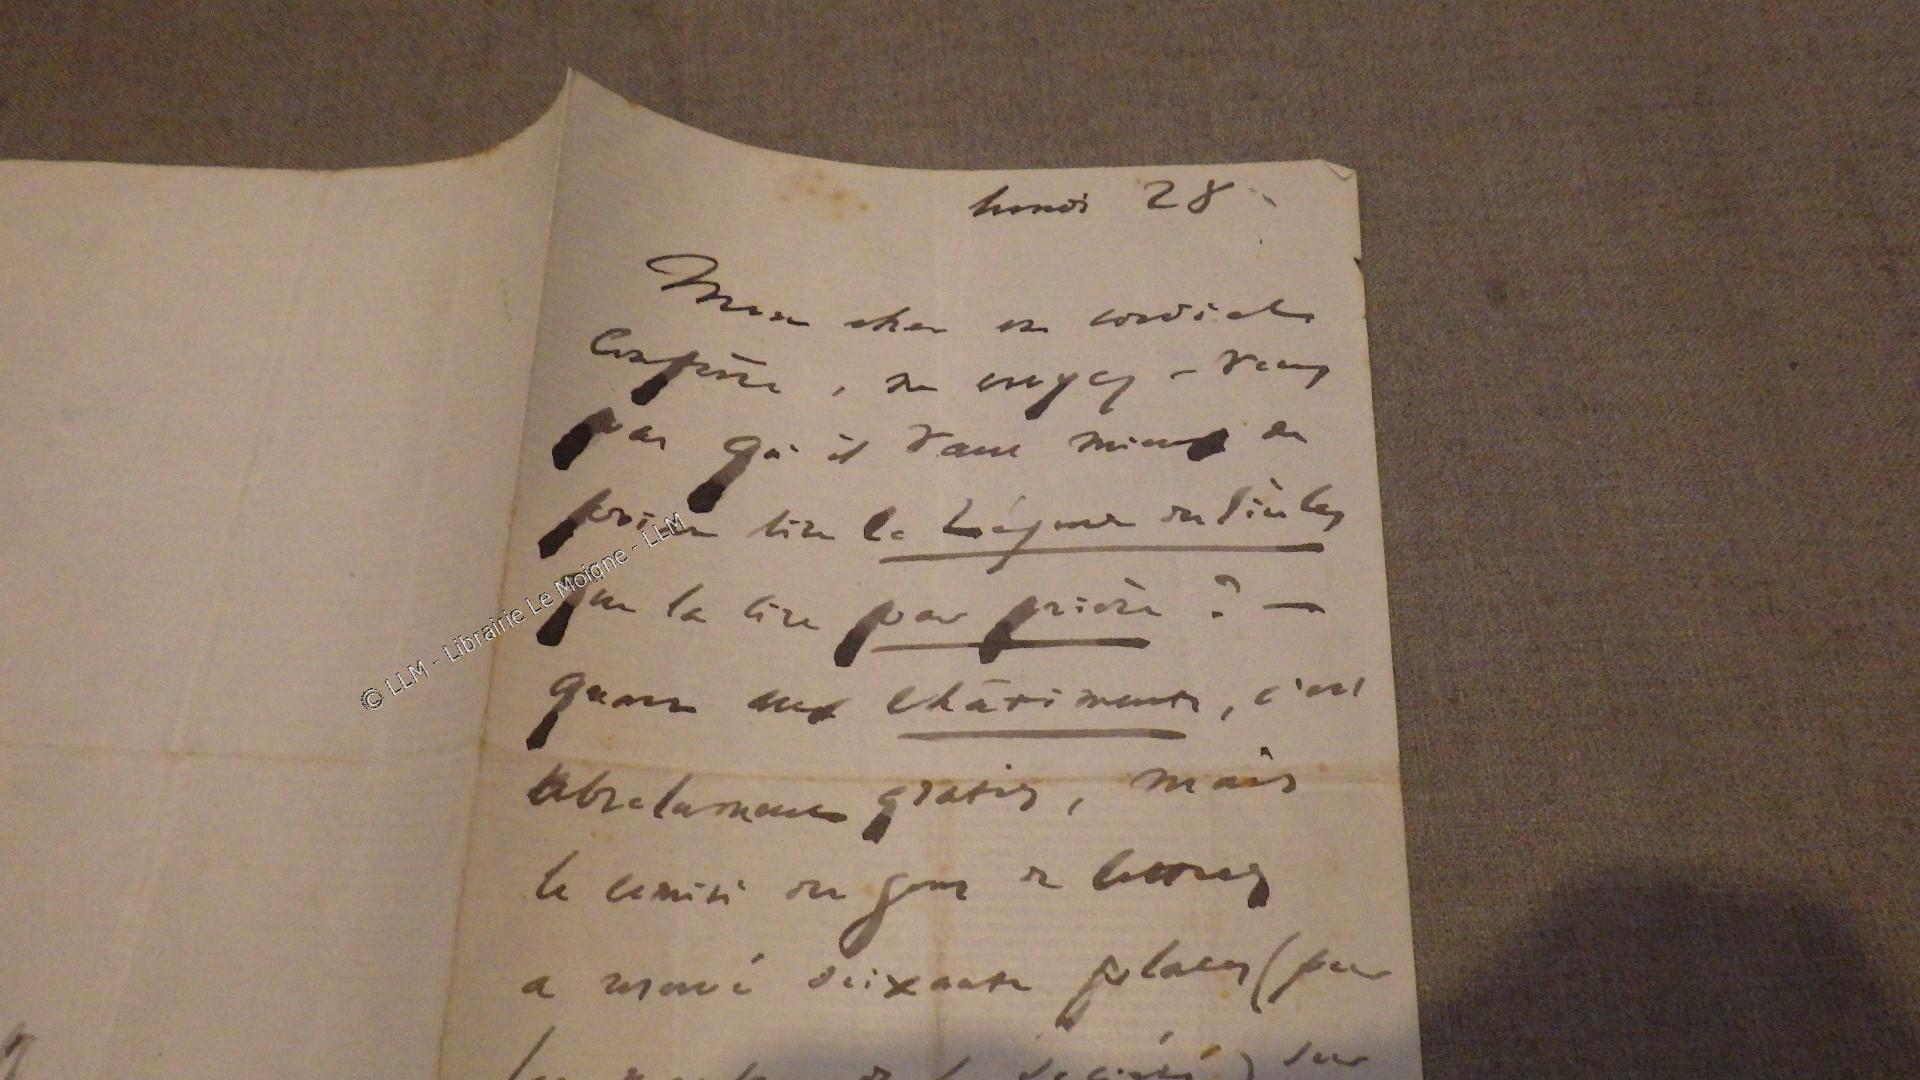 lundi 28
Mon cher et cordial
Confrère, ne croyez-vous
pas qu'il vaut mieux ne
point lire la Légende des Siècles
que la lire par prière ? —
quant aux Châtiments, c'est
absolument gratis, mais
le comité des gens de lettres
a réservé soixante places (pour
les de la société) sur
© LLM - Librairie Le Moigne - LLM